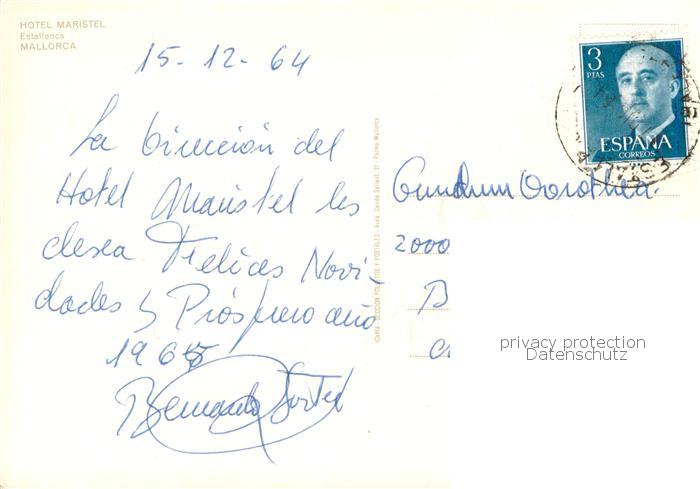 HOTEL MARISTEL
Estallencs
MALLORCA
15-12-64
La Dirección del
Hotel Maristel les
desea Felices Novi-
dades y Próspero año
1965
Bernardo
3
PTAS
ESPAÑA
CORREOS
Gundrun Dorothea.
2000
B
privacy protection
Datenschutz